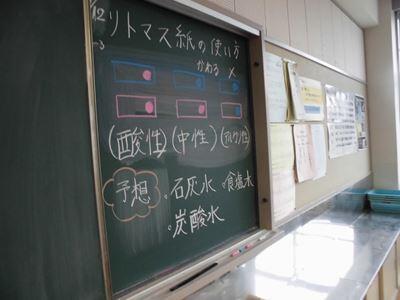 リトマス紙の使い方
かわる ×
(酸性)(中性)(アルカリ性)
予想 ・石灰水 ・食塩水
・炭酸水